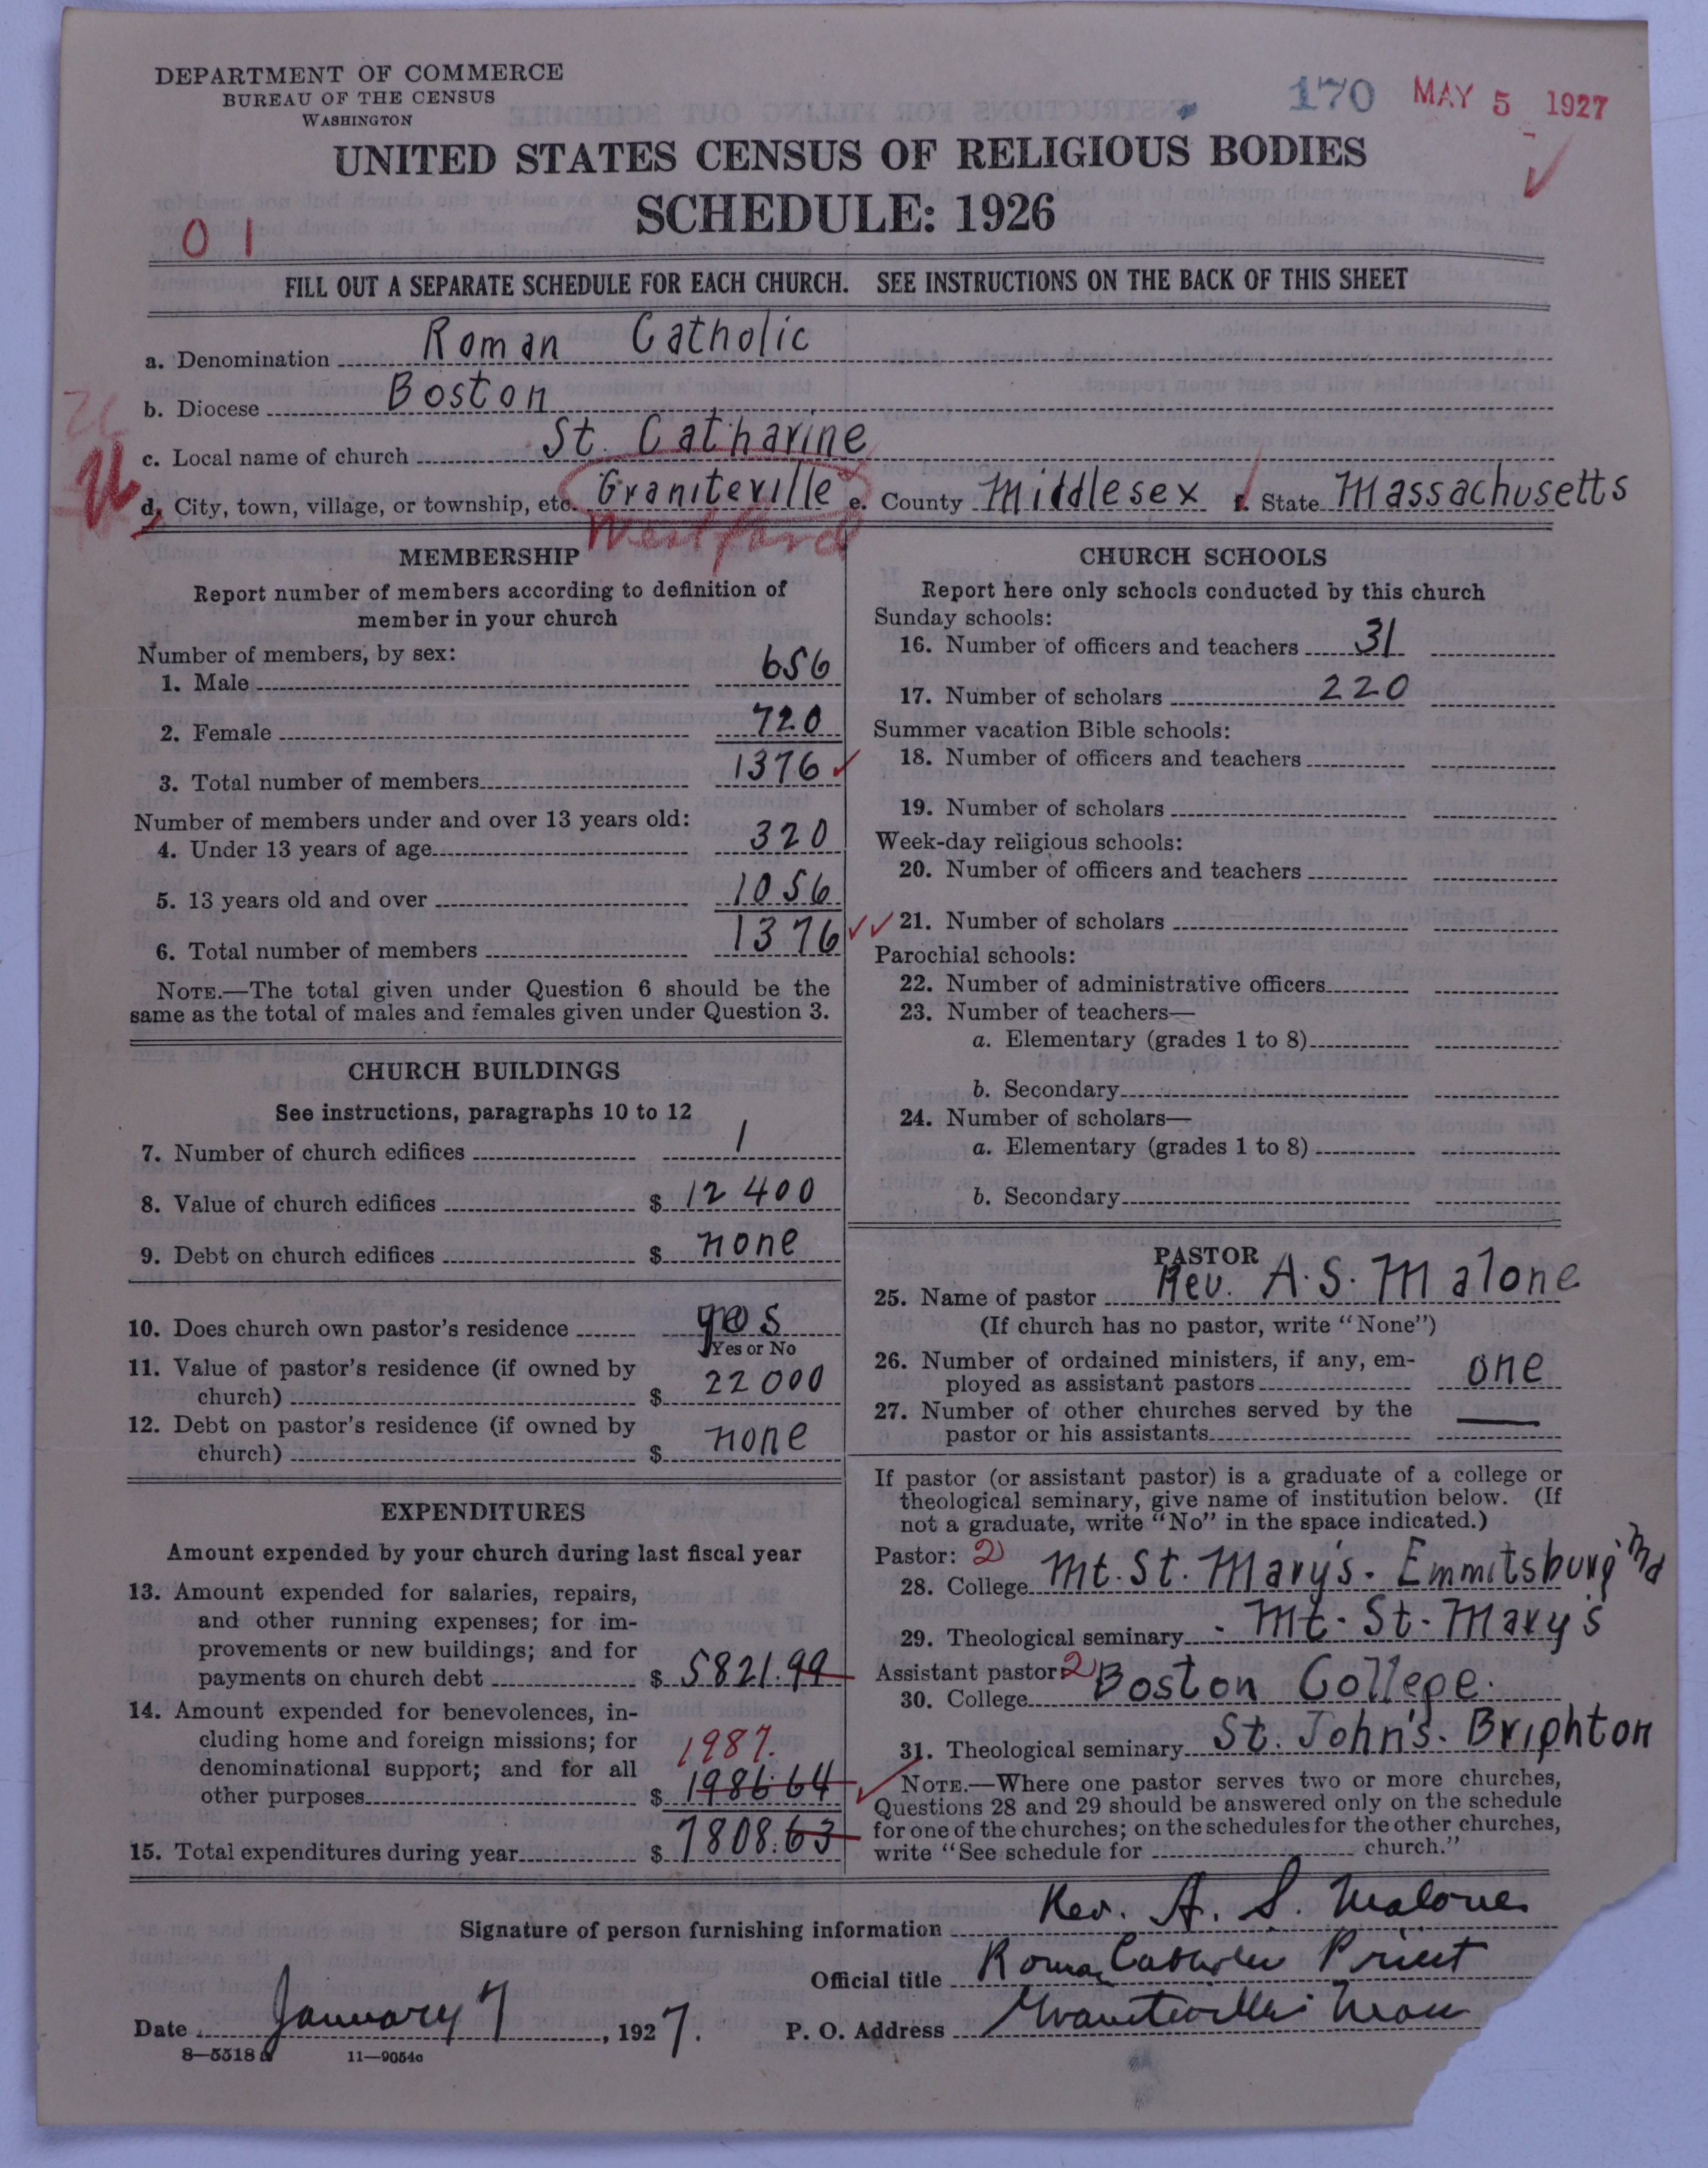 DEPARTMENT OF COMMERCE
BUREAU OF THE CENSUS
WASHINGTON
170 MAY 5 1927
UNITED STATES CENSUS OF RELIGIOUS BODIES
SCHEDULE: 1926
0 1
FILL OUT A SEPARATE SCHEDULE FOR EACH CHURCH. SEE INSTRUCTIONS ON THE BACK OF THIS SHEET
a. Denomination Roman Catholic
b. Diocese Boston
c. Local name of church St. Catharine
d. City, town, village, or township, etc. Graniteville e. County Middlesex f. State Massachusetts
Westford
MEMBERSHIP
Report number of members according to definition of
member in your church
Number of members, by sex:
1. Male 656
2. Female 720
3. Total number of members 1376
Number of members under and over 13 years old:
4. Under 13 years of age 320
5. 13 years old and over 1056
6. Total number of members 1376
NOTE.—The total given under Question 6 should be the
same as the total of males and females given under Question 3.
CHURCH BUILDINGS
See instructions, paragraphs 10 to 12
7. Number of church edifices 1
8. Value of church edifices $ 12400
9. Debt on church edifices $ none
10. Does church own pastor's residence yes
Yes or No
11. Value of pastor's residence (if owned by
church) $ 22000
12. Debt on pastor's residence (if owned by
church) $ none
EXPENDITURES
Amount expended by your church during last fiscal year
13. Amount expended for salaries, repairs,
and other running expenses; for im-
provements or new buildings; and for
payments on church debt $ 5821.99
14. Amount expended for benevolences, in-
cluding home and foreign missions; for
denominational support; and for all 1987.
other purposes $ 1986.64
15. Total expenditures during year $ 7808.63
CHURCH SCHOOLS
Report here only schools conducted by this church
Sunday schools:
16. Number of officers and teachers 31
17. Number of scholars 220
Summer vacation Bible schools:
18. Number of officers and teachers
19. Number of scholars
Week-day religious schools:
20. Number of officers and teachers
21. Number of scholars
Parochial schools:
22. Number of administrative officers
23. Number of teachers—
a. Elementary (grades 1 to 8)
b. Secondary
24. Number of scholars—
a. Elementary (grades 1 to 8)
b. Secondary
PASTOR
25. Name of pastor Rev. A. S. Malone
(If church has no pastor, write "None")
26. Number of ordained ministers, if any, em-
ployed as assistant pastors one
27. Number of other churches served by the
pastor or his assistants —
If pastor (or assistant pastor) is a graduate of a college or
theological seminary, give name of institution below. (If
not a graduate, write "No" in the space indicated.)
Pastor: 2
28. College Mt. St. Mary's. Emmitsburg Md
29. Theological seminary Mt. St. Mary's
Assistant pastor: 2
30. College Boston College.
31. Theological seminary St. John's. Brighton
NOTE.—Where one pastor serves two or more churches,
Questions 28 and 29 should be answered only on the schedule
for one of the churches; on the schedules for the other churches,
write "See schedule for church."
Signature of person furnishing information Rev. A. S. Malone
Official title Roman Catholic Priest
Date January 7, 1927. P. O. Address Graniteville Mass
8—5518 a 11—9054a